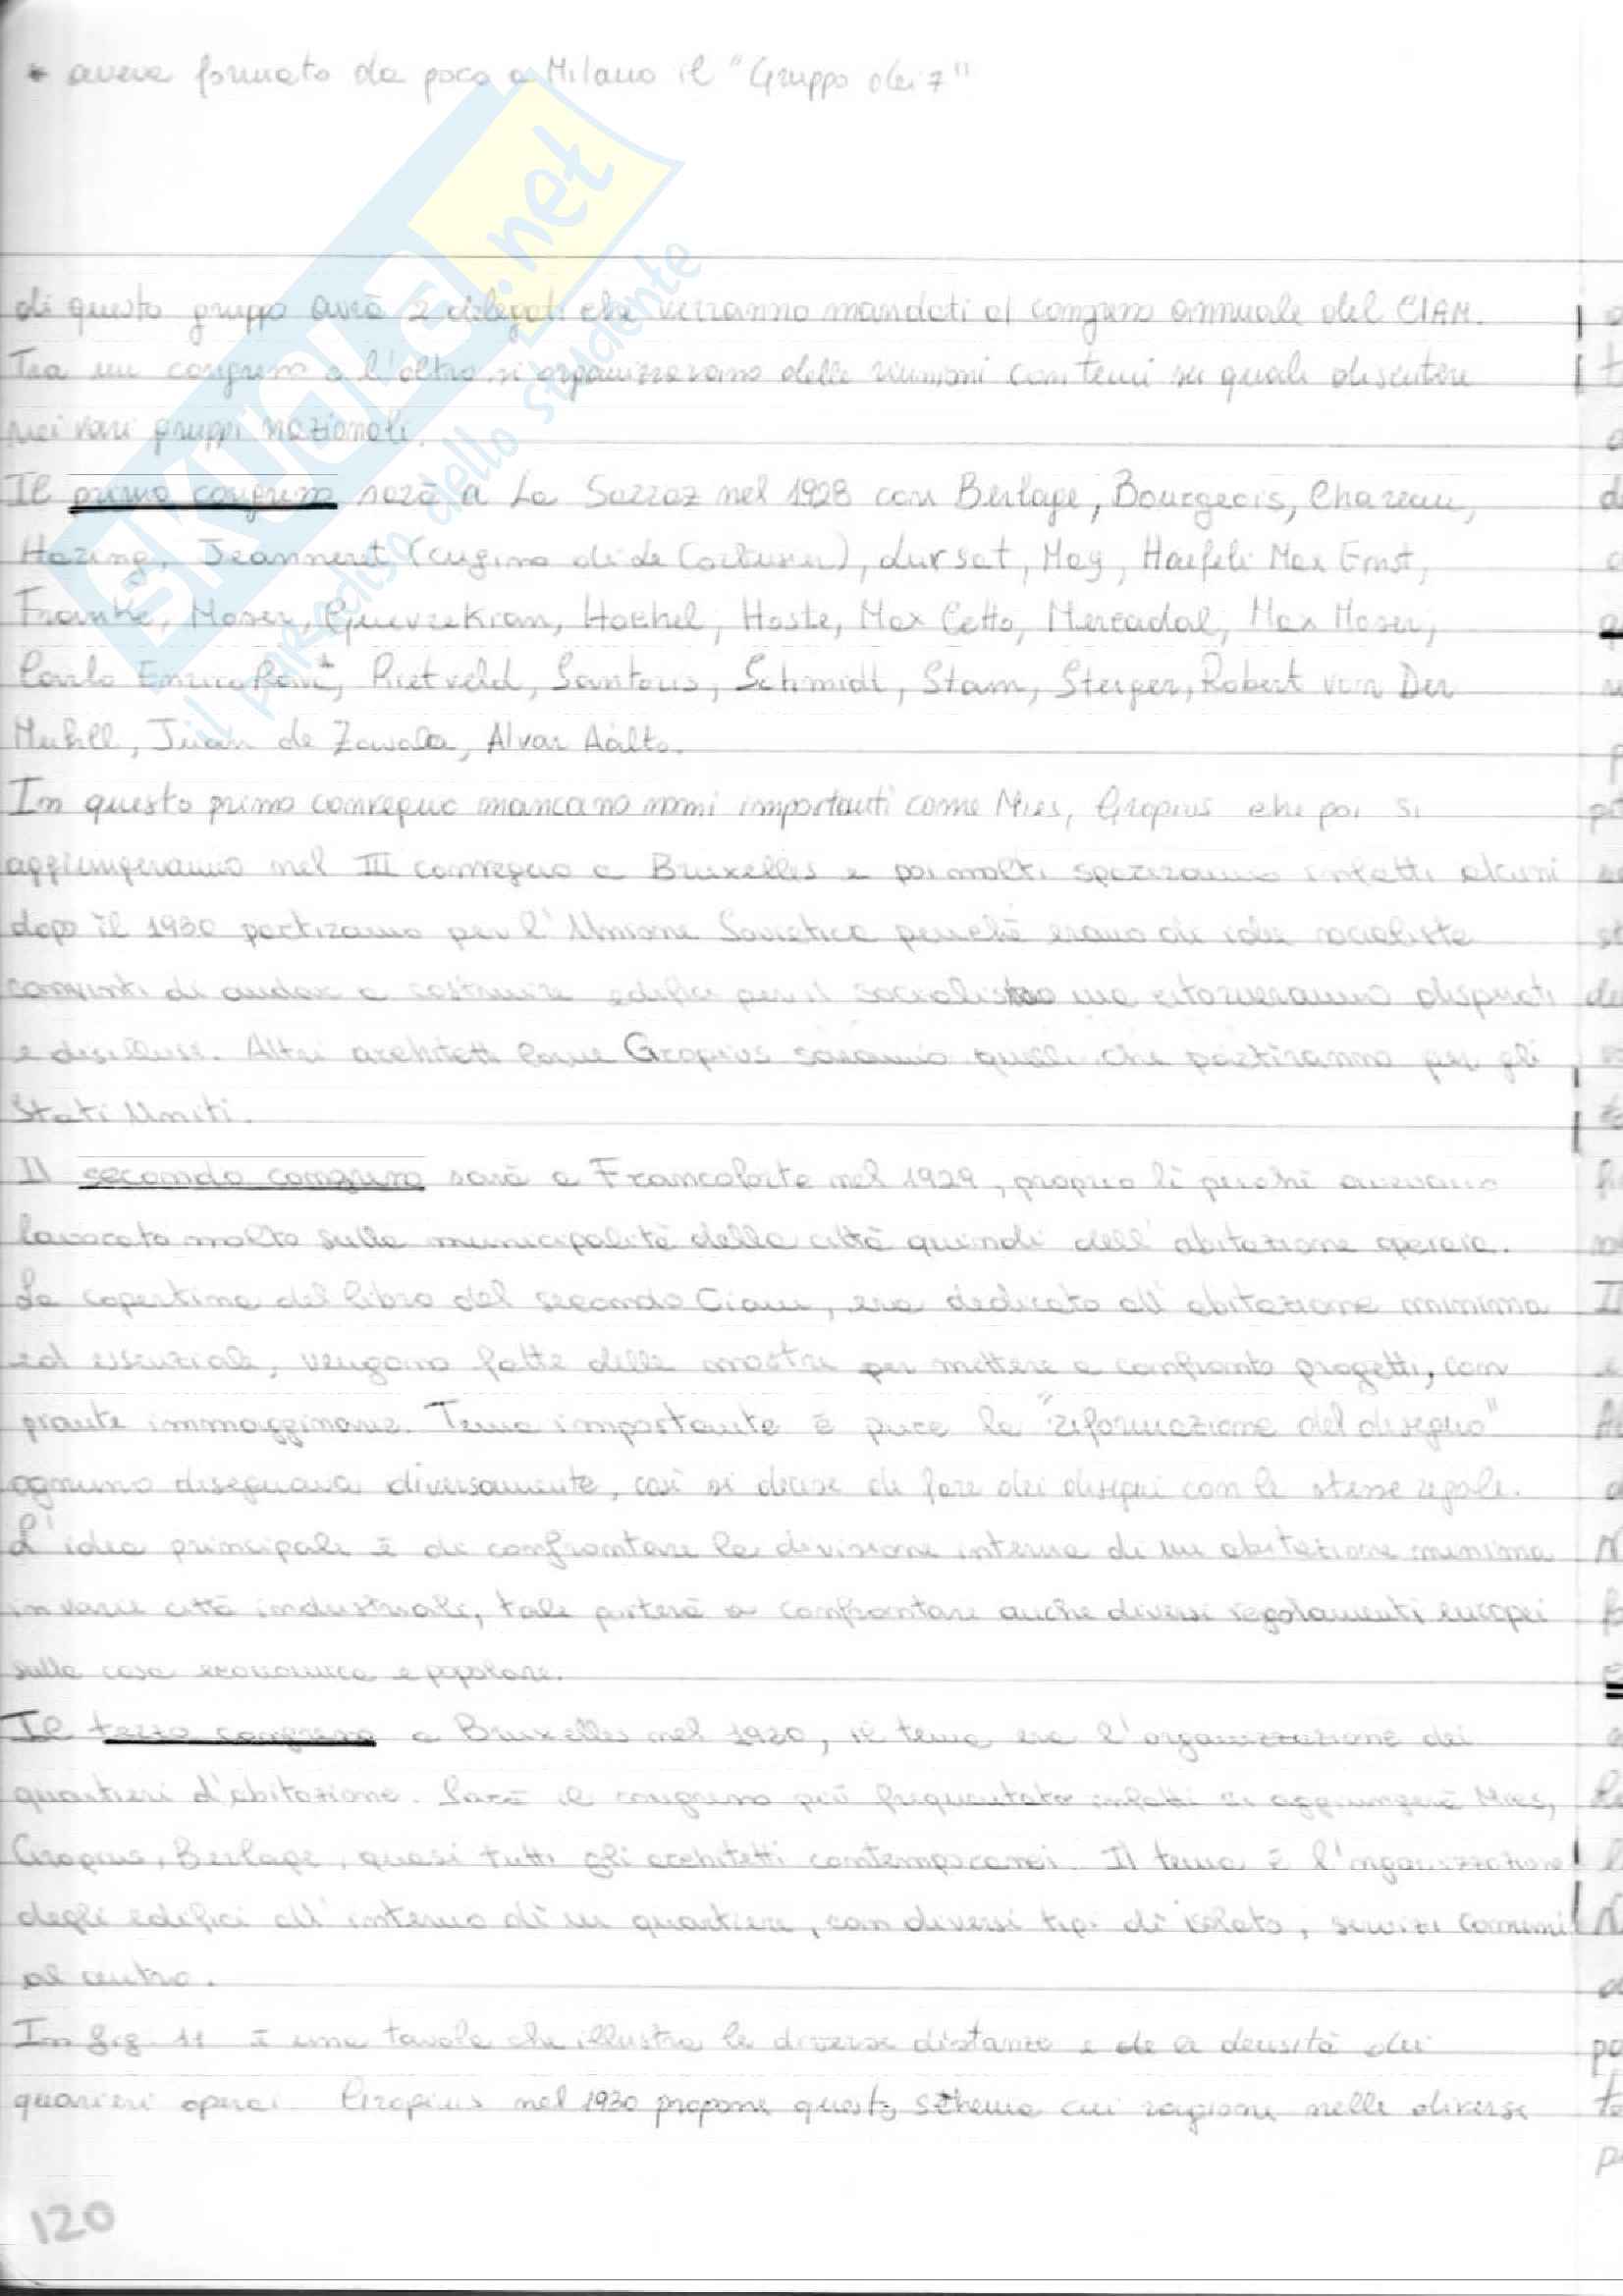 * aveva formato da poco a Milano il "Gruppo dei 7"
SKUOLA.net
il paradiso dello studente
di questo gruppo avrà 2 delegati che verranno mandati al congresso annuale del CIAM.
Tra un congresso e l'altro si organizzeranno delle riunioni con temi su quali discutere
nei vari gruppi nazionali.
Il primo congresso sarà a La Sarraz nel 1928 con Berlage, Bourgeois, Chareau,
Häring, Jeanneret (cugino di Le Corbusier), Lursat, May, Haefeli Max Ernst,
Franke, Moser, Guevrekian, Hoechel, Hoste, Max Cetto, Mercadal, Max Moser,
Carlo Enrico Rava*, Rietveld, Sartoris, Schmidt, Stam, Steiger, Robert von Der
Muhll, Juan de Zavala, Alvar Aalto.
In questo primo convegno mancano nomi importanti come Mies, Gropius che poi si
aggiungeranno nel III convegno a Bruxelles e poi molti spariranno infatti alcuni
dopo il 1930 partiranno per l'Unione Sovietica perchè erano di idee socialiste
convinti di andare a costruire edifici per il socialismo ma ritorneranno
e desillusi. Altri architetti come Gropius saranno quelli che partiranno per gli
Stati Uniti.
Il secondo congresso sarà a Francoforte nel 1929, proprio lì perchè avevano
lavorato molto sulla municipalità della città quindi dell'abitazione operaia.
La copertina del libro del secondo Ciam, era dedicato all'abitazione minima
ed essenziale, vengono fatte delle mostre per mettere a confronto progetti, con
piante immagginarie. Tema importante è pure la "riformazione del disegno"
ognuno disegnava diversamente, così si decise di fare dei disegni con le stesse regole.
L'idea principale è di confrontare la divisione interna di un abitazione minima
in varie città industriali, tale porterà a confrontare anche diversi regolamenti europei
sulla casa economica e popolare.
Il terzo congresso a Bruxelles nel 1930, il tema era l'organizzazione dei
quartieri d'abitazione. Sarà il congresso più frequentato infatti si aggiungerà Mies,
Gropius, Berlage, quasi tutti gli architetti contemporanei. Il tema è l'organizzazione
degli edifici all'interno di un quartiere, con diversi tipi di isolato, servizi comuni
al centro.
In fig. 11 è una tavola che illustra le diverse distanze e de la densità dei
quarieri operai. Gropius nel 1930 propone questo schema cui ragiona nelle diverse
120